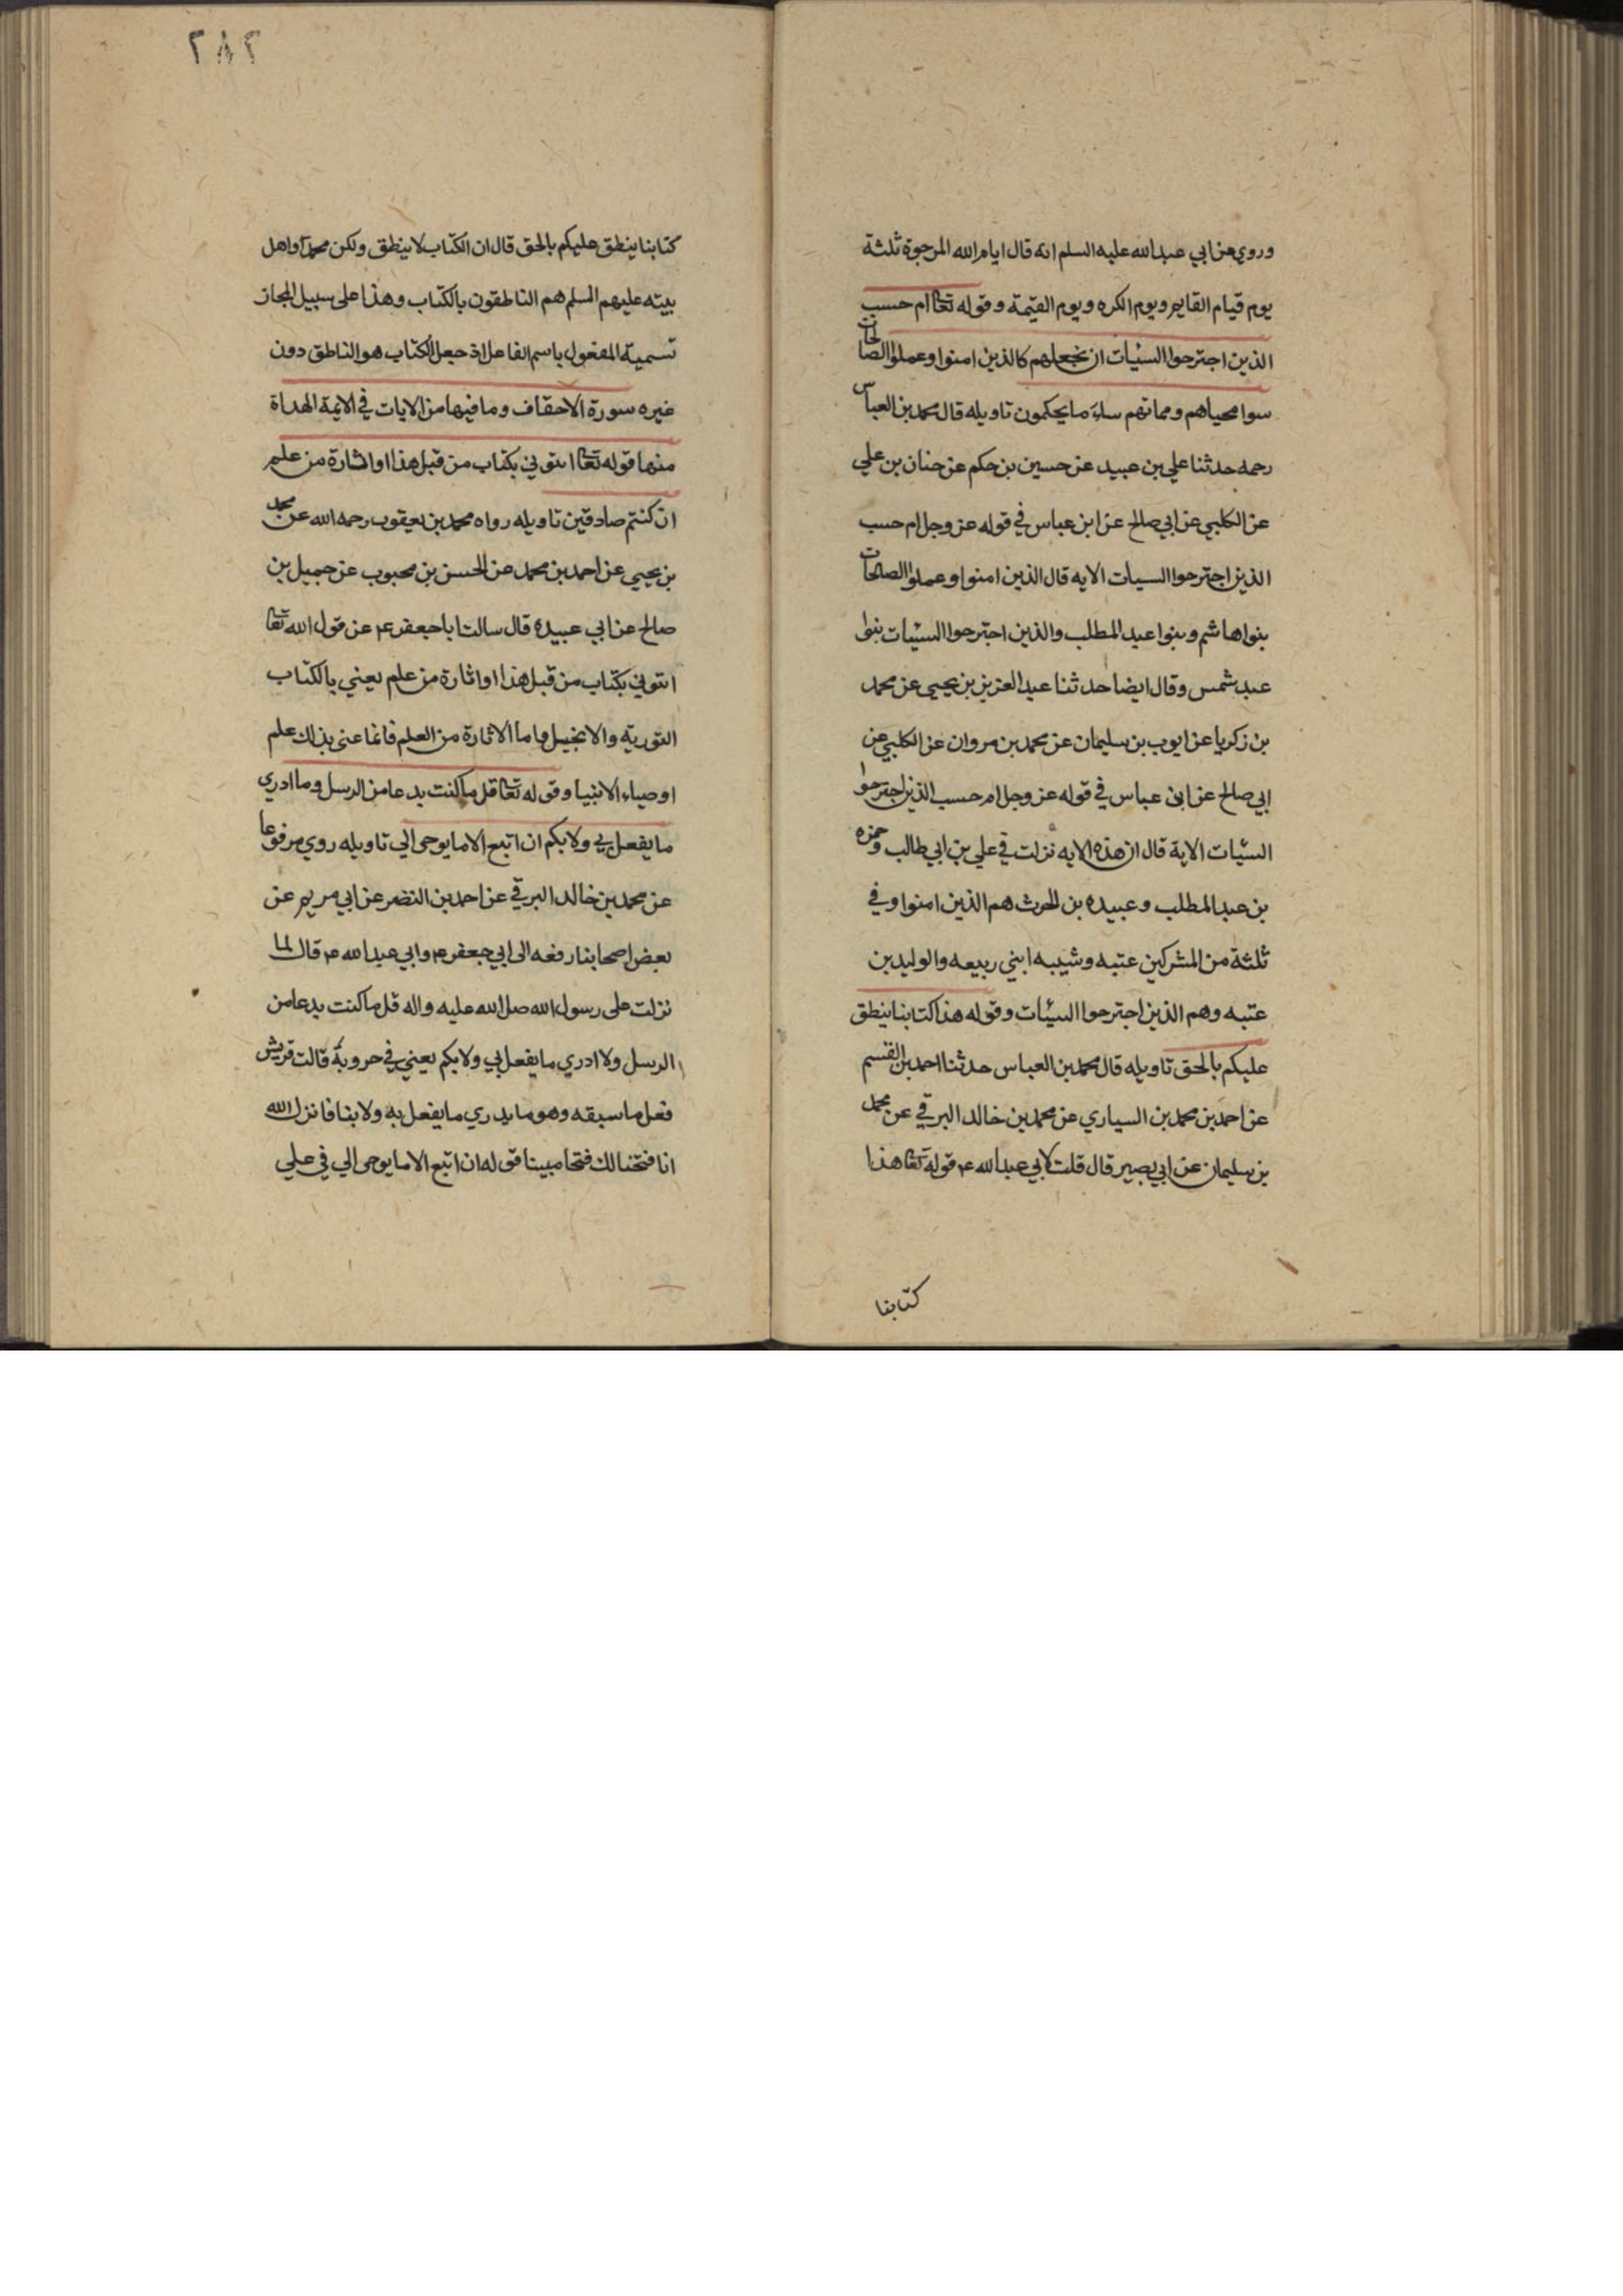 وروي عن ابي عبد الله عليه السلم انه قال ايام الله المرجوة ثلثة
يوم قيام القايم ويوم الكره ويوم القيمة وقوله تعا ام حسب
الذين اجترحوا السيئات ان نجعلهم كالذين امنوا وعملوا الصالحات
سوا محياهم ومماتهم ساء ما يحكمون تاويله قال محمد بن العباس
رحمه حدثنا علي بن عبيد عن حسين بن حكم عن حنان بن علي
عن الكلبي عن ابي صالح عن ابن عباس في قوله عز وجل ام حسب
الذين اجترحوا السيات الايه قال الذين امنوا وعملوا الصالحات
بنوا هاشم وبنوا عبد المطلب والذين اجترحوا السيئات بنوا
عبد شمس وقال ايضا حدثنا عبد العزيز بن يحيى عن محمد
بن زكريا عن ايوب بن سليمان عن محمد بن مروان عن الكلبي عن
ابي صالح عن ابن عباس في قوله عز وجل ام حسب الذين اجترحوا
السيئات الاية قال ان هذه الايه نزلت في علي بن ابي طالب وحمزه
بن عبد المطلب وعبيده بن الحرث هم الذين امنوا وفي
ثلثة من المشركين عتبه وشيبه ابني ربيعه والوليد بن
عتبه وهم الذين اجترحوا السيئات وقوله هذا كتابنا ينطق
عليكم بالحق تاويله قال محمد بن العباس حدثنا احمد بن القسم
عن احمد بن محمد بن السياري عن محمد بن خالد البرقي عن محمد
بن سليمان عن ابي بصير قال قلت لابي عبد الله ع قوله تعا هذا
كتابنا
٢٨٢
كتابنا ينطق عليكم بالحق قال ان الكتاب لا ينطق ولكن محمدا واهل
بيته عليهم السلم هم الناطقون بالكتاب وهذا على سبيل المجاز
تسمية المفعول باسم الفاعل اذ جعل الكتاب هو الناطق دون
غيره سورة الاحقاف وما فيها من الايات في الائمة الهداة
منها قوله تعا ائتوني بكتاب من قبل هذا او اثارة من علم
ان كنتم صادقين تاويله رواه محمد بن يعقوب رحمه الله عن محمد
بن يحيى عن احمد بن محمد عن الحسن بن محبوب عن جميل بن
صالح عن ابي عبيده قال سالت ابا جعفر ع عن قول الله تعا
ائتوني بكتاب من قبل هذا او اثارة من علم يعني بالكتاب
التورية والانجيل واما الاثارة من العلم فانما عنى بذلك علم
اوصياء الانبيا وقوله تعا قل ما كنت بدعا من الرسل وما ادري
ما يفعل بي ولا بكم ان اتبع الا ما يوحى الي تاويله روي مرفوعا
عن محمد بن خالد البرقي عن احمد بن النضر عن ابي مريم عن
بعض اصحابنا رفعه الى ابي جعفر ع وابي عبد الله ع قال لما
نزلت على رسول الله صل الله عليه واله قل ما كنت بدعا من
الرسل ولا ادري ما يفعل بي ولا بكم يعني في حروبه قالت قريش
فعل ما سبقه وهو ما يدري ما يفعل به ولا بنا فانزل الله
انا فتحنا لك فتحا مبينا قوله ان اتبع الا ما يوحى الي في علي